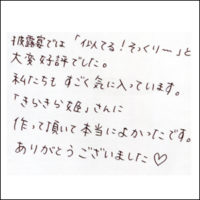 披露宴では「似てる！そっくりー」と
大変好評でした。
私たちも すごく気に入っています。
「きらきら姫」さんに
作って頂いて本当によかったです。
ありがとうございました♡